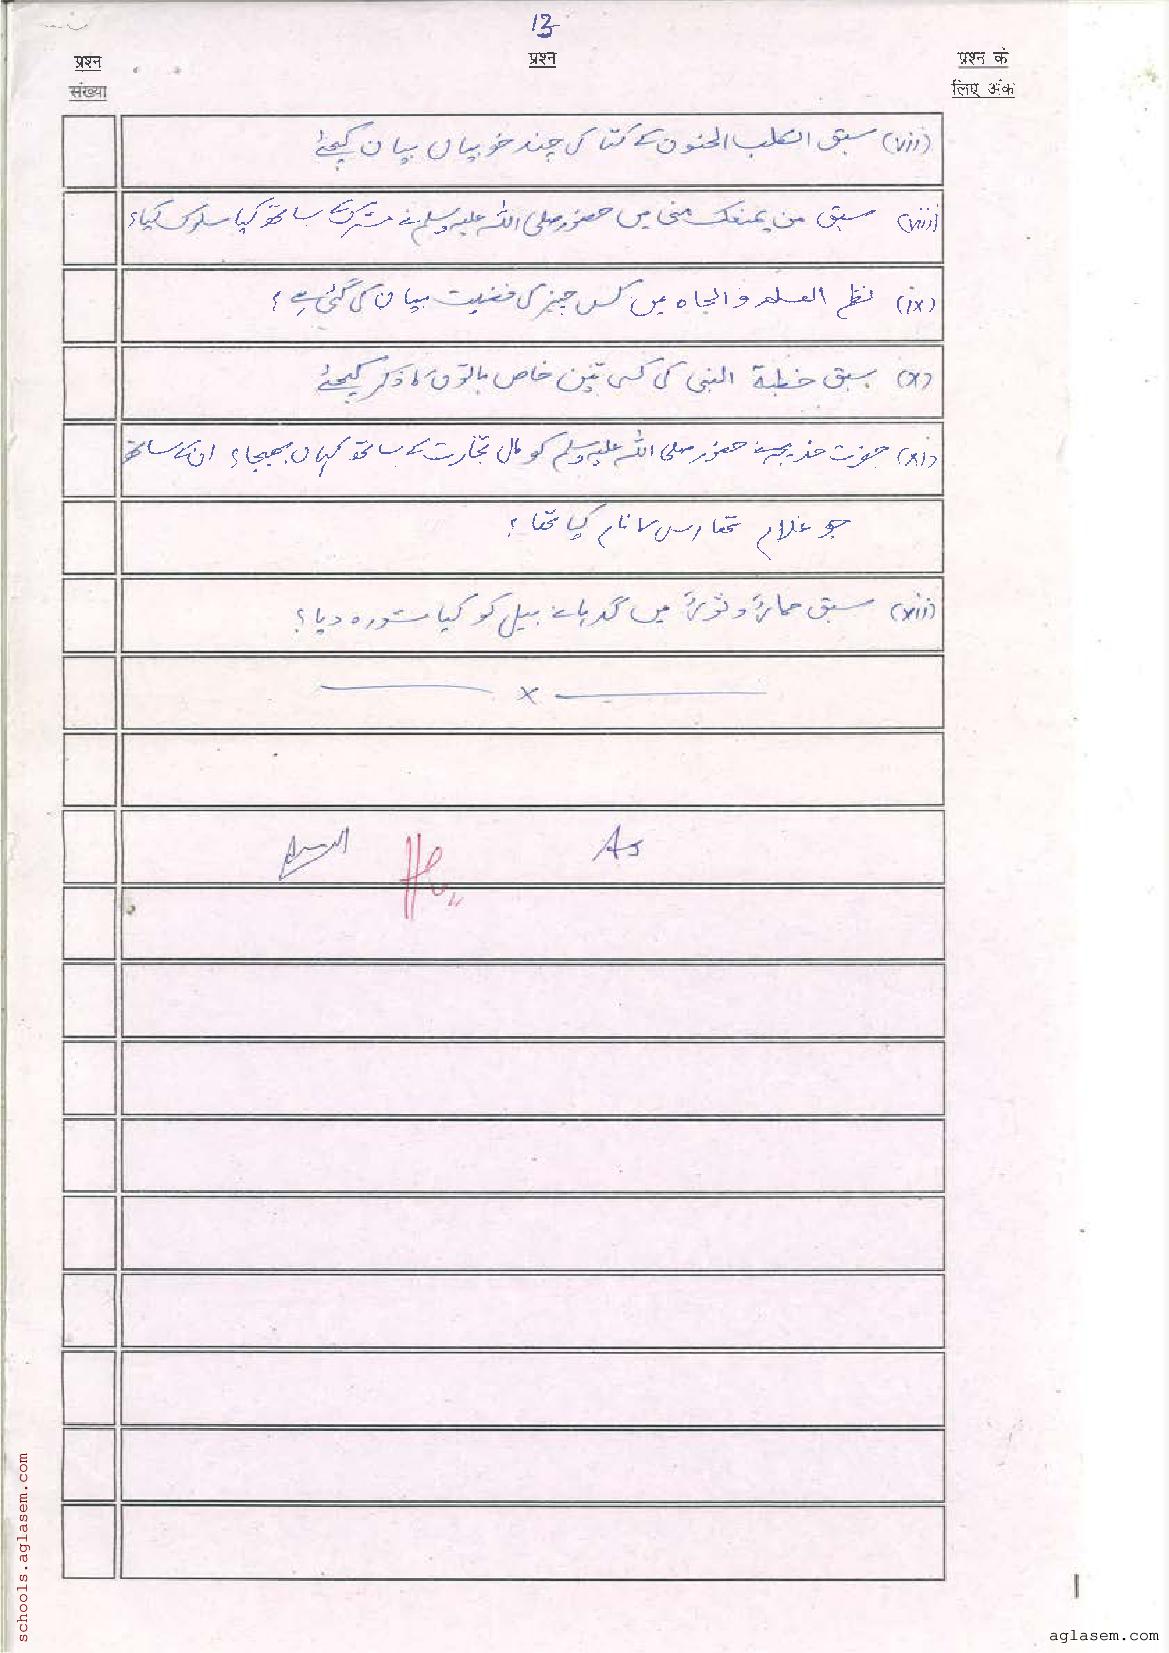 13
प्रश्न
संख्या
प्रश्न
प्रश्न के
लिए अंक
(vii) سبق الکلب الحنون کے کتا کی چند خوبیاں بیان کیجئے
(viii) سبق من یمنعک منی میں حضور صلی اللہ علیہ وسلم نے مشرک کے ساتھ کیا سلوک کیا؟
(ix) نظم العلم والجاہ میں کس چیز کی فضیلت بیان کی گئی ہے؟
(x) سبق خطبة النبی کی کسی تین خاص باتوں کا ذکر کیجئے
(xi) حضرت خدیجہ نے حضور صلی اللہ علیہ وسلم کو مال تجارت کے ساتھ کہاں بھیجا؟ ان کے ساتھ
جو غلام تھا اس کا نام کیا تھا؟
(xii) سبق حمار و ثور میں گدہا نے بیل کو کیا مشورہ دیا؟
x
As
schools.aglasem.com
aglasem.com